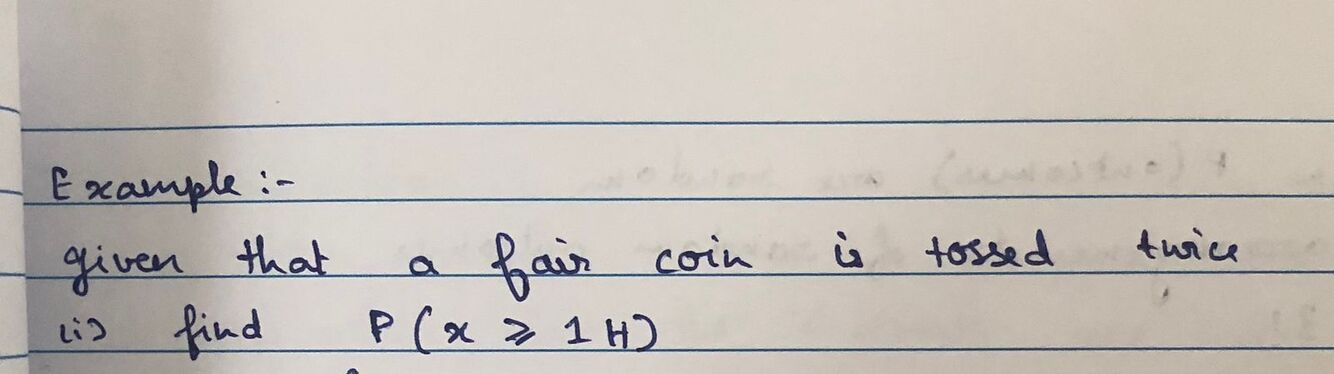 Example :-
given that a fair coin is tossed twice
(i) find P ( x ⩾ 1 H )